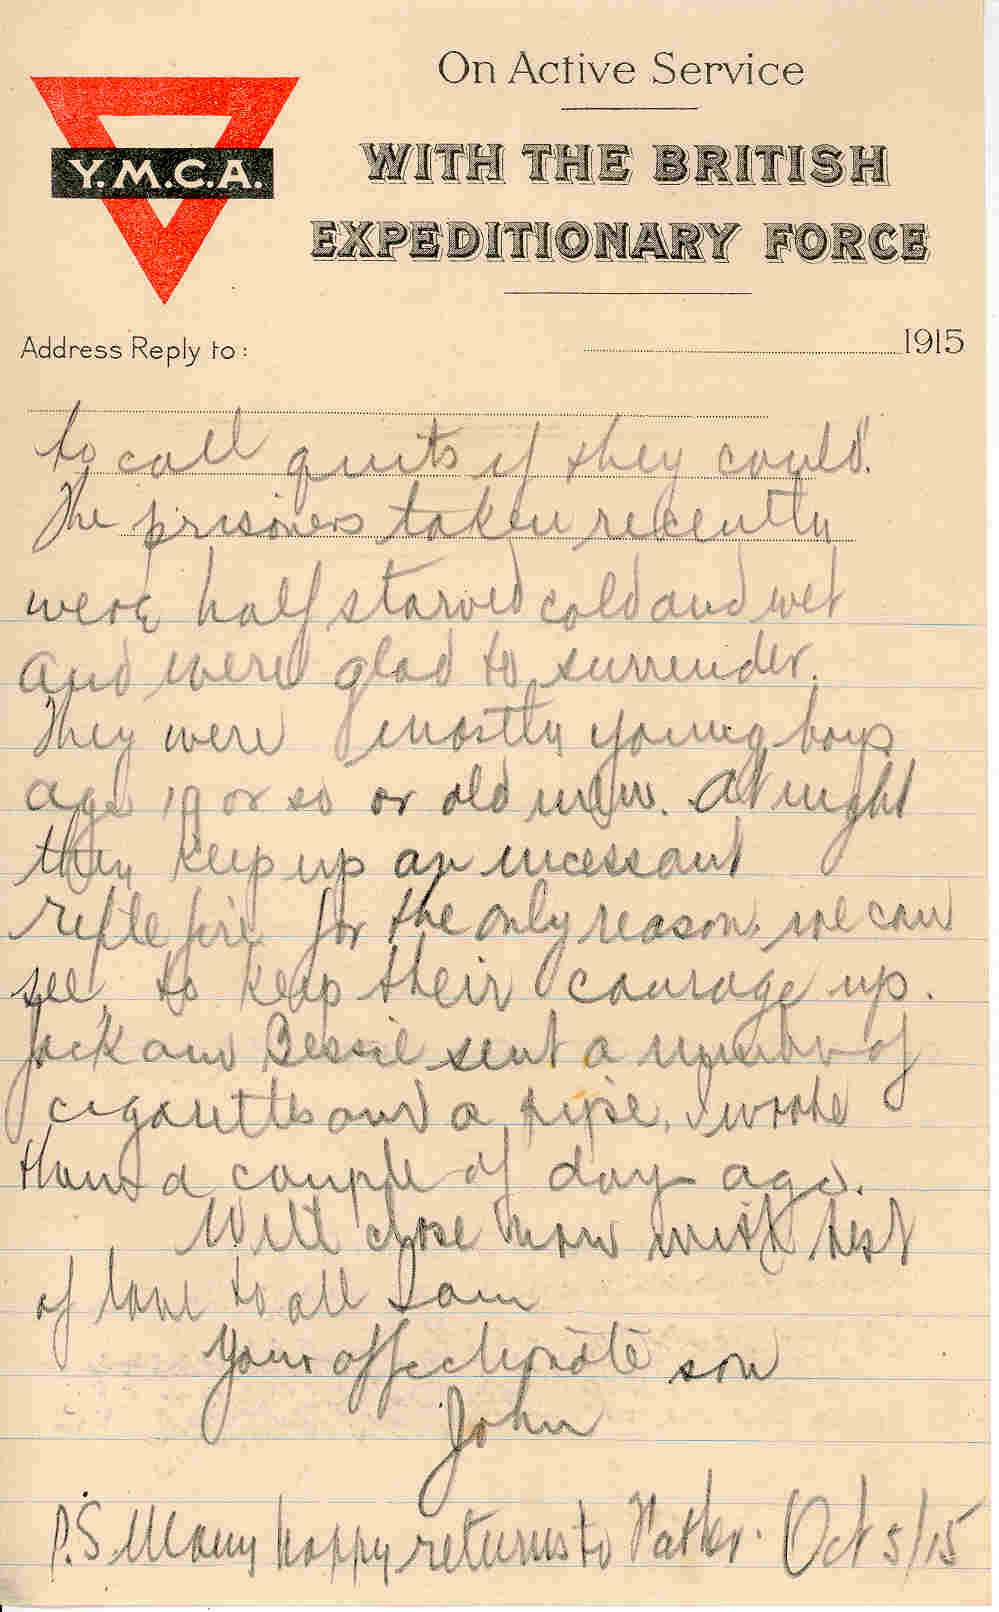 On Active Service
WITH THE BRITISH
EXPEDITIONARY FORCE
Y.M.C.A.
Address Reply to:
1915
to call quits if they could.
The prisoners taken recently
were half starved cold and wet
and were glad to surrender.
They were mostly young boys
age 19 or so or old men. At night
they keep up an incessant
rifle fire for the only reason we can
see, to keep their courage up.
Jack and Bessie sent a number of
cigarettes and a pipe. I wrote
them a couple of days ago.
Will close now with best
of love to all I am
Your affectionate son
John
P.S. Many happy returns to Father. Oct 5/15